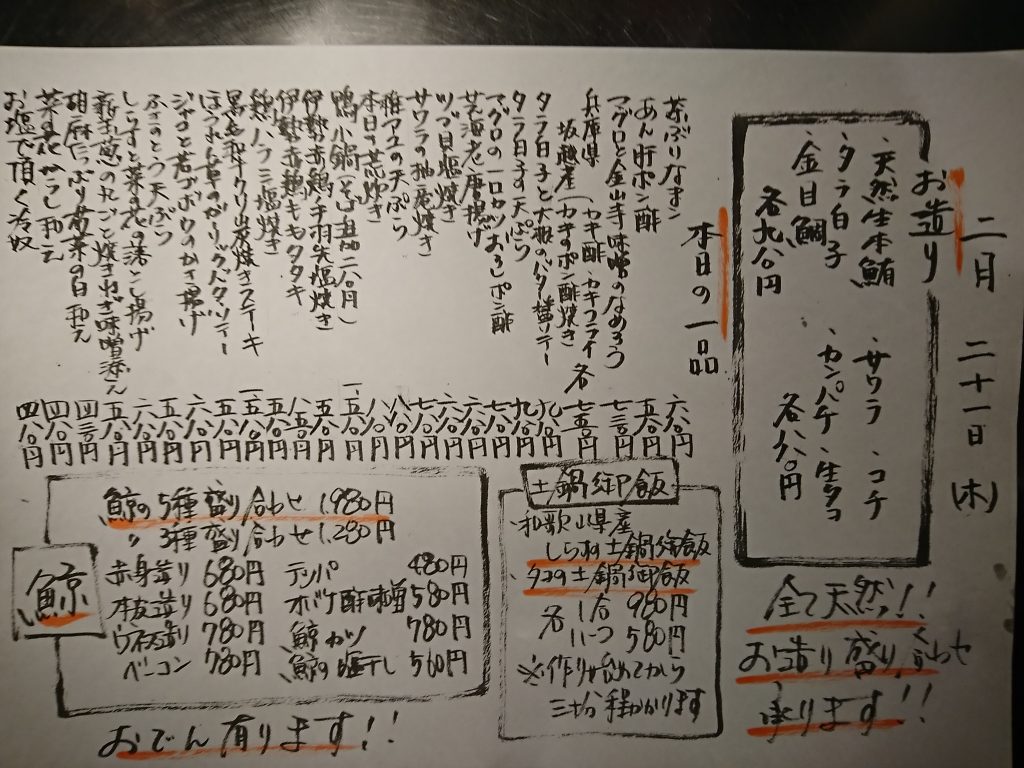 二月 二十一日 (木)
お造り
・天然生本鮪
・タラ白子
金目鯛
各九八〇円
・サワラ ・コチ
・カンパチ ・生タコ
各八八〇円
全て天然!!
お造り盛り合わせ
承ります!!
本日の一品
茶ぶりなまこ 六八〇円
あん肝ポン酢 五八〇円
マグロと金山寺味噌のなめろう 七三〇円
兵庫県 坂越産(カキ酢・カキフライ カキのポン酢焼き) 各 七五〇円
タラ白子と大根のバター醤ソテー 九八〇円
タラ白子の天ぷら 九八〇円
マグロの一口カツおろしポン酢 七八〇円
芝海老唐揚げ 六八〇円
ツブ貝塩焼き 六八〇円
サワラの柚庵焼き 七八〇円
稚アユの天ぷら 八八〇円
本日の荒炊き 八八〇円
鴨小鍋 一、五八〇円
伊勢赤鶏手羽先塩焼き 五八〇円
伊勢赤鶏モモタタキ 八五〇円
鶏ハラミ塩焼き 五八〇円
黒毛和牛クリ炭焼きステーキ 一、五八〇円
ほうれん草のガーリックバターソテー 六八〇円
ジャコと若ゴボウのかき揚げ 五八〇円
ふきのとう天ぷら 六八〇円
しらすと菜の花の落とし揚げ 五八〇円
新玉葱のたご焼きねぎ味噌添え 四三〇円
胡麻たっぷり春菜の白和え 四八〇円
菜の花からし和え 四八〇円
お塩で頂く冷奴 四八〇円
土鍋御飯
・和歌山県産
しらすの土鍋御飯
・タコの土鍋御飯
各 1合 980円
ハーフ 580円
※作り始めてから
三十分程かかります
鯨
鯨の5種盛り合わせ 1,980円
〃 3種盛り合わせ 1,280円
赤身造り 680円 テッパ 480円
本皮造り 680円 オバケ酢味噌 580円
ウネス造り 780円 鯨カツ 780円
ベーコン 780円 鯨の塩干し 560円
おでん有ります!!